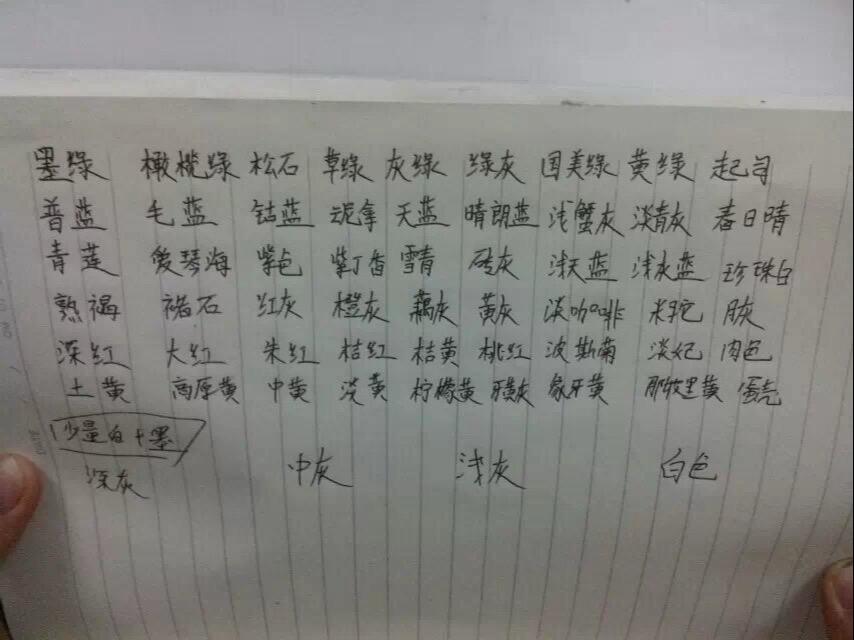 墨绿 橄榄绿 松石 草绿 灰绿 绿灰 国美绿 黄绿 起司
普蓝 毛蓝 钴蓝 坭拿 天蓝 晴朗蓝 浅蟹灰 淡青灰 春日晴
青莲 爱琴海 紫色 紫丁香 雪青 砖灰 浅天蓝 浅灰蓝 珍珠白
熟褐 褚石 红灰 橙灰 藕灰 黄灰 淡咖啡 米驼 月灰
深红 大红 朱红 桔红 桔黄 桃红 波斯菊 淡妃 肉色
土黄 高原黄 中黄 淡黄 柠檬黄 玥灰 象牙黄 那坡里黄 蛋壳
少量白+墨
深灰 中灰 浅灰 白色